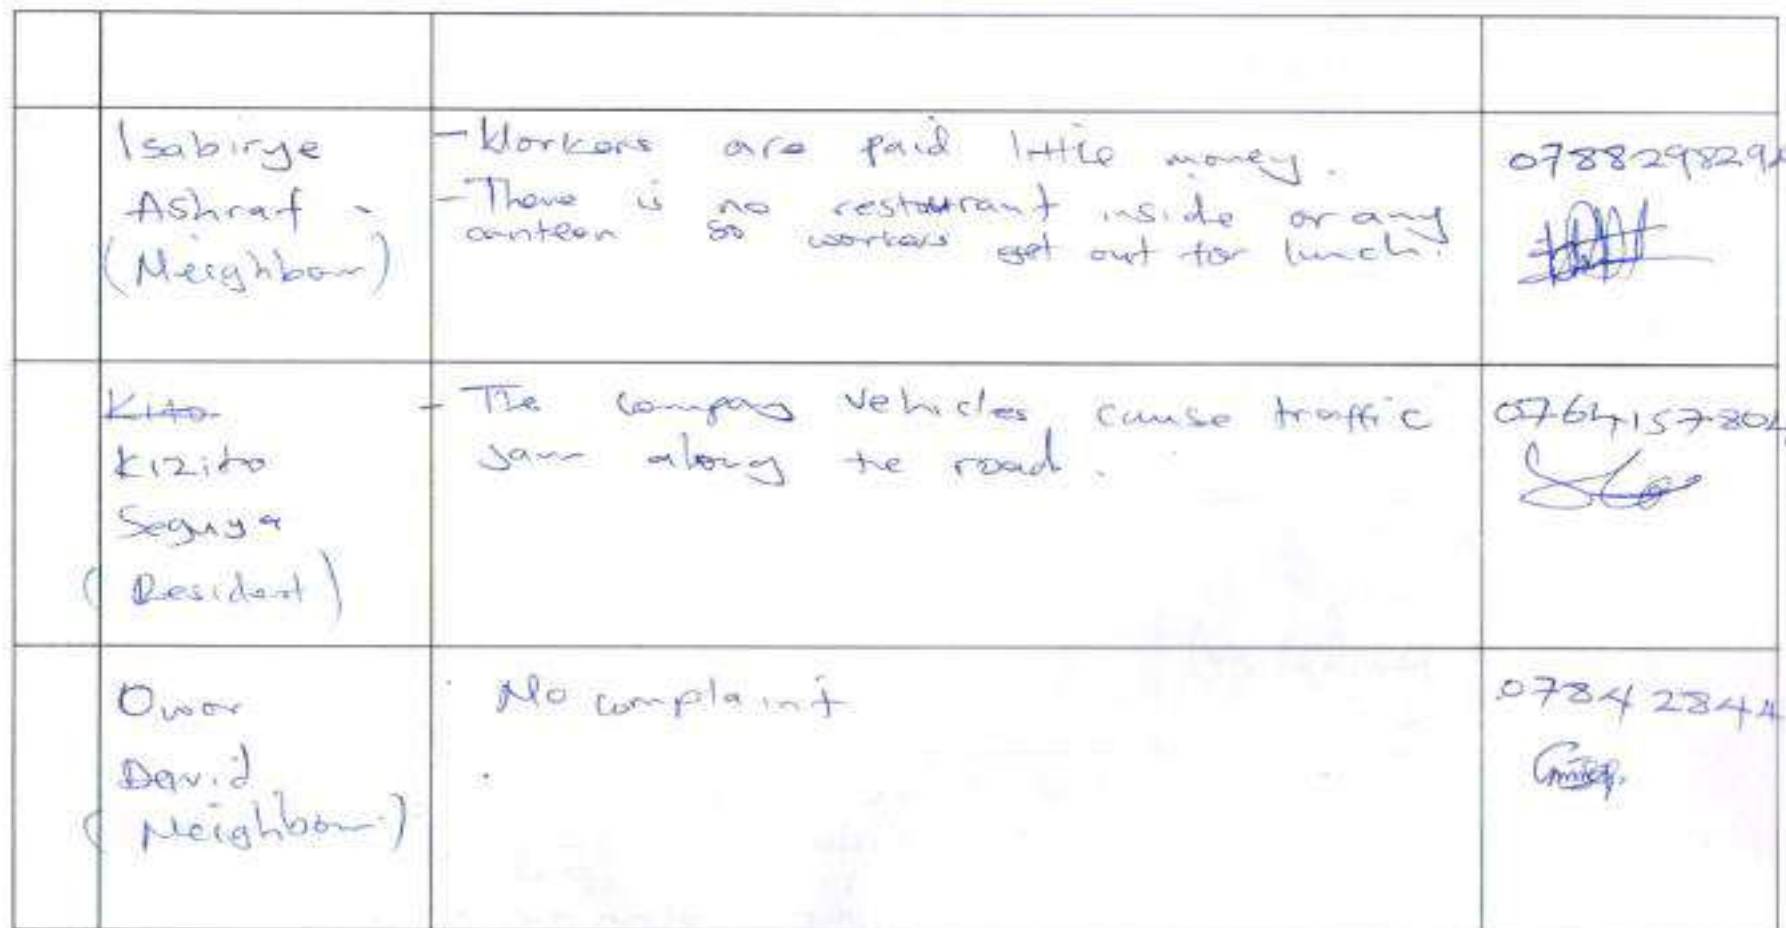 Isabirye
Ashraf -
(Neighbour)
- Workers are paid little money.
- There is no restaurant inside or any
canteen so workers get out for lunch.
0788298294
Kito
Kizito
Seguya
(Resident)
- The company vehicles cause traffic
jam along the road.
0764157804
Owor
David
(Neighbour)
No complaint
07842844